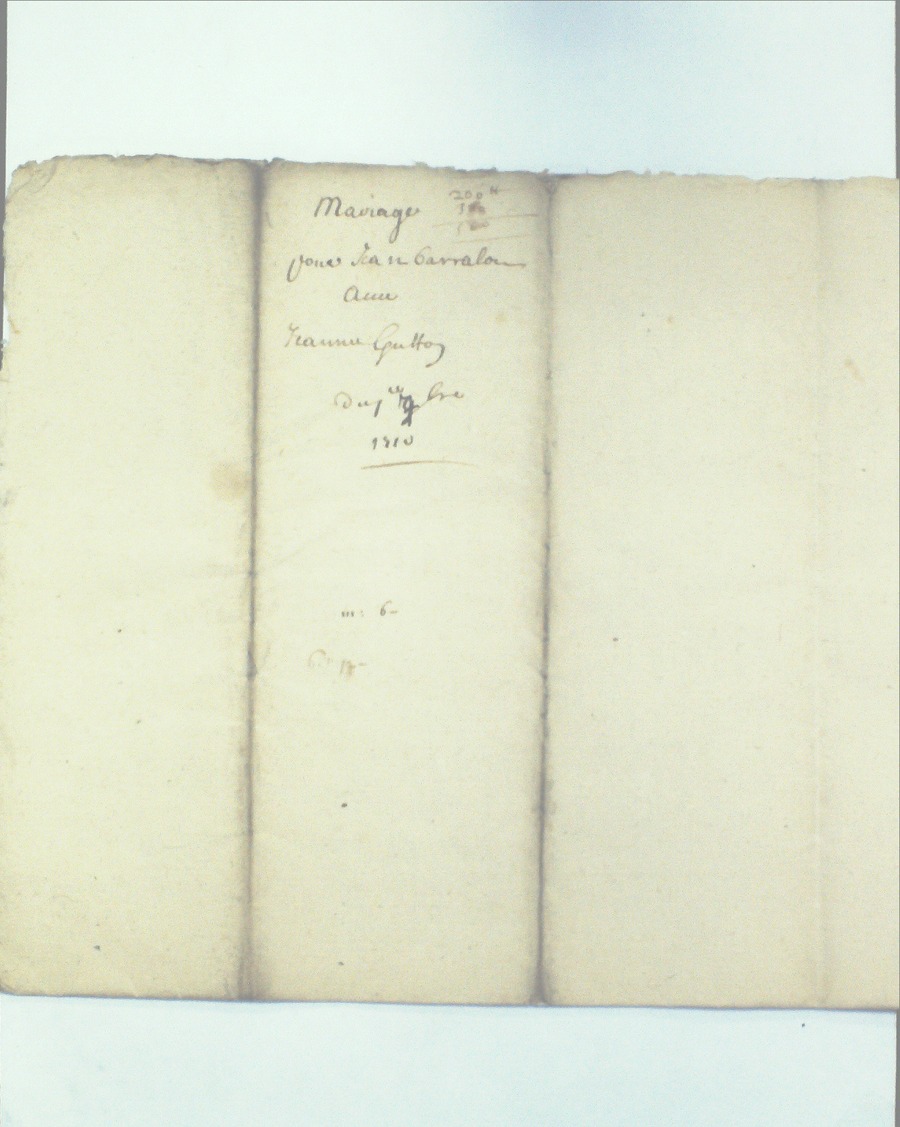 Mariage 200 ₶
300
pour Jean Barralon
avec
Jeanne Gutton
du 1er 9bre
1710
m: 6-